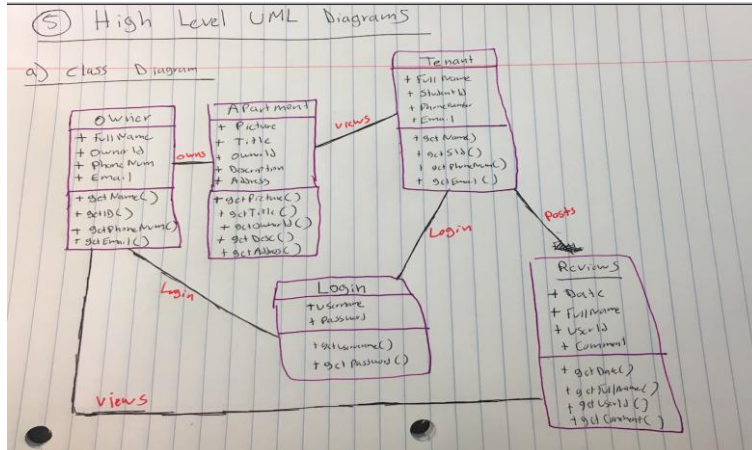 5 High Level UML Diagrams
a) Class Diagram
Owner
+ FullName
+ OwnerId
+ PhoneNum
+ Email
+ getName()
+ getID()
+ getPhoneNum()
+ getEmail()
owns
Apartment
+ Picture
+ Title
+ OwnerId
+ Description
+ Address
+ getPicture()
+ getTitle()
+ getOwnerId()
+ getDesc()
+ getAddress()
views
Tenant
+ Full Name
+ StudentId
+ PhoneNumber
+ Email
+ getName()
+ getSId()
+ getPhoneNum()
+ getEmail()
Login
Login
Login
+ Username
+ Password
+ getUsername()
+ getPassword()
Posts
Reviews
+ Date
+ FullName
+ UserId
+ Comment
+ getDate()
+ getFullName()
+ getUserId()
+ getComment()
views